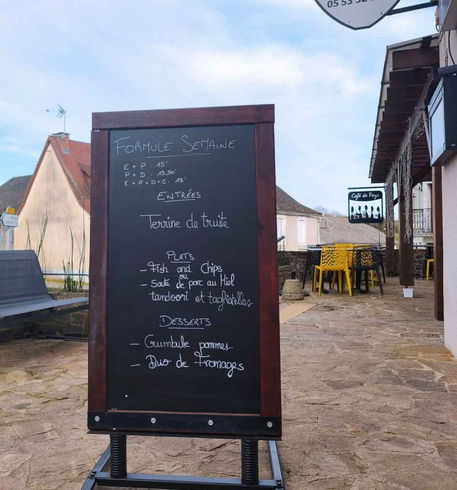 05 53 52
Formule Semaine
E + P = 15'
P + D = 13,50'
E + P + D + C = 18'
Entrées
Terrine de truite
Plats
- Fish and Chips
ou
- Sauté de porc au Miel
tandoori et tagliatelles
Desserts
- Crumble pommes
- Duo de Fromages
Café de Pays